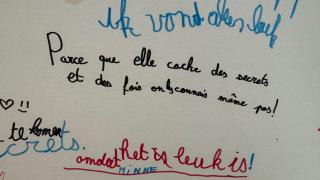 ik vond alles leuk
Parce que elle cache des secrets
et des fois on les connais même pas!
te komen
crets.
omdat het is leuk is!
MINNE